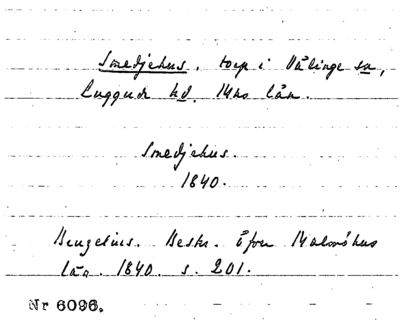 Smedjehus, torp i Välinge sn,
Luggude hd. Mhs län.
Smedjehus.
1840.
Bengelius. Beskr. öfver Malmöhus
län. 1840. s. 201.
Nr 6096.